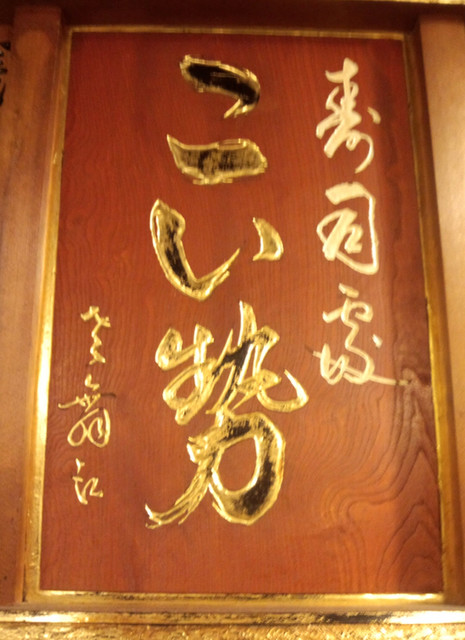 寿司處
こい勢